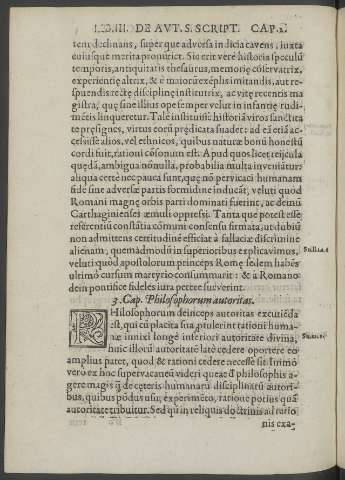 LIB. III. DE AVT. S. SCRIPT. CAP.
tem declinans, super que adversa indicia cavens, iuxta
cuiusque merita pronunciet. Sic erit vere historia speculũ
temporis, antiquitatis thesaurus, memoriæ cõservatrix,
experientiæ altrix, & e maiorũ exẽplis imitandi, aut re-
spuendi recte disciplinæ institutrix, ac vitæ recentis ma
gistra, quę sine illius ope semper velut in infantię rudi-
mẽtis linqueretur. Talẽ institutis historiã viros sanctita
te pręsignes, virtus eorũ prędicata suadet: ad eã eriã ac-
celsisse alios, vel ethnicos, quibus naturæ bonũ honestũ
cordi fuit, rationi cõsonum est. Apud quos licet reijcula
quędã, ambigua nõnulla, probabilia multa inveniãtur:
aliqua certe nec pauca sunt, quę nõ pervicaci humanam
fide sine adversæ partis formidine inducãt, veluti quod
Romani magnę orbis parti dominati fuerint, ac demũ
Carthaginienses æmuli oppressi. Tanta que potest esse
referentiũ constãtia cõmuni consensu firmata, ut dubiũ
non admittens certitudinẽ efficiat à fallaciæ discrimine
alienam, quemadmodũ in superioribus explicavimus,
veluti quòd apostolorum princeps Romę sedem habẽs
ultimõ cursum martyrio consummarit: & à Romano
dein pontifice fideles iura petere sueverint.
3. Cap. Philosophorum autoritas.
PHilosophorum deinceps autoritas excutiẽda
est, qui cũ placita sua, ptulerint rationi huma-
næ innixi longè inferiori autoritate divina,
huic illorũ autoritatẽ latè cedere oportere eò
amplius patet, quod & rationi cedere necesse sit. Immò
vero ex hoc supervacaneũ videri queat d philosophis a-
gere magis q̃ de cęteris humanarũ disciplinarũ autori-
bus, quibus podus usu, experimẽto, ratione potius quã
autoritate tribuitur. Sed quĩ in reliquis doctrinis ad ratio
nis exa-